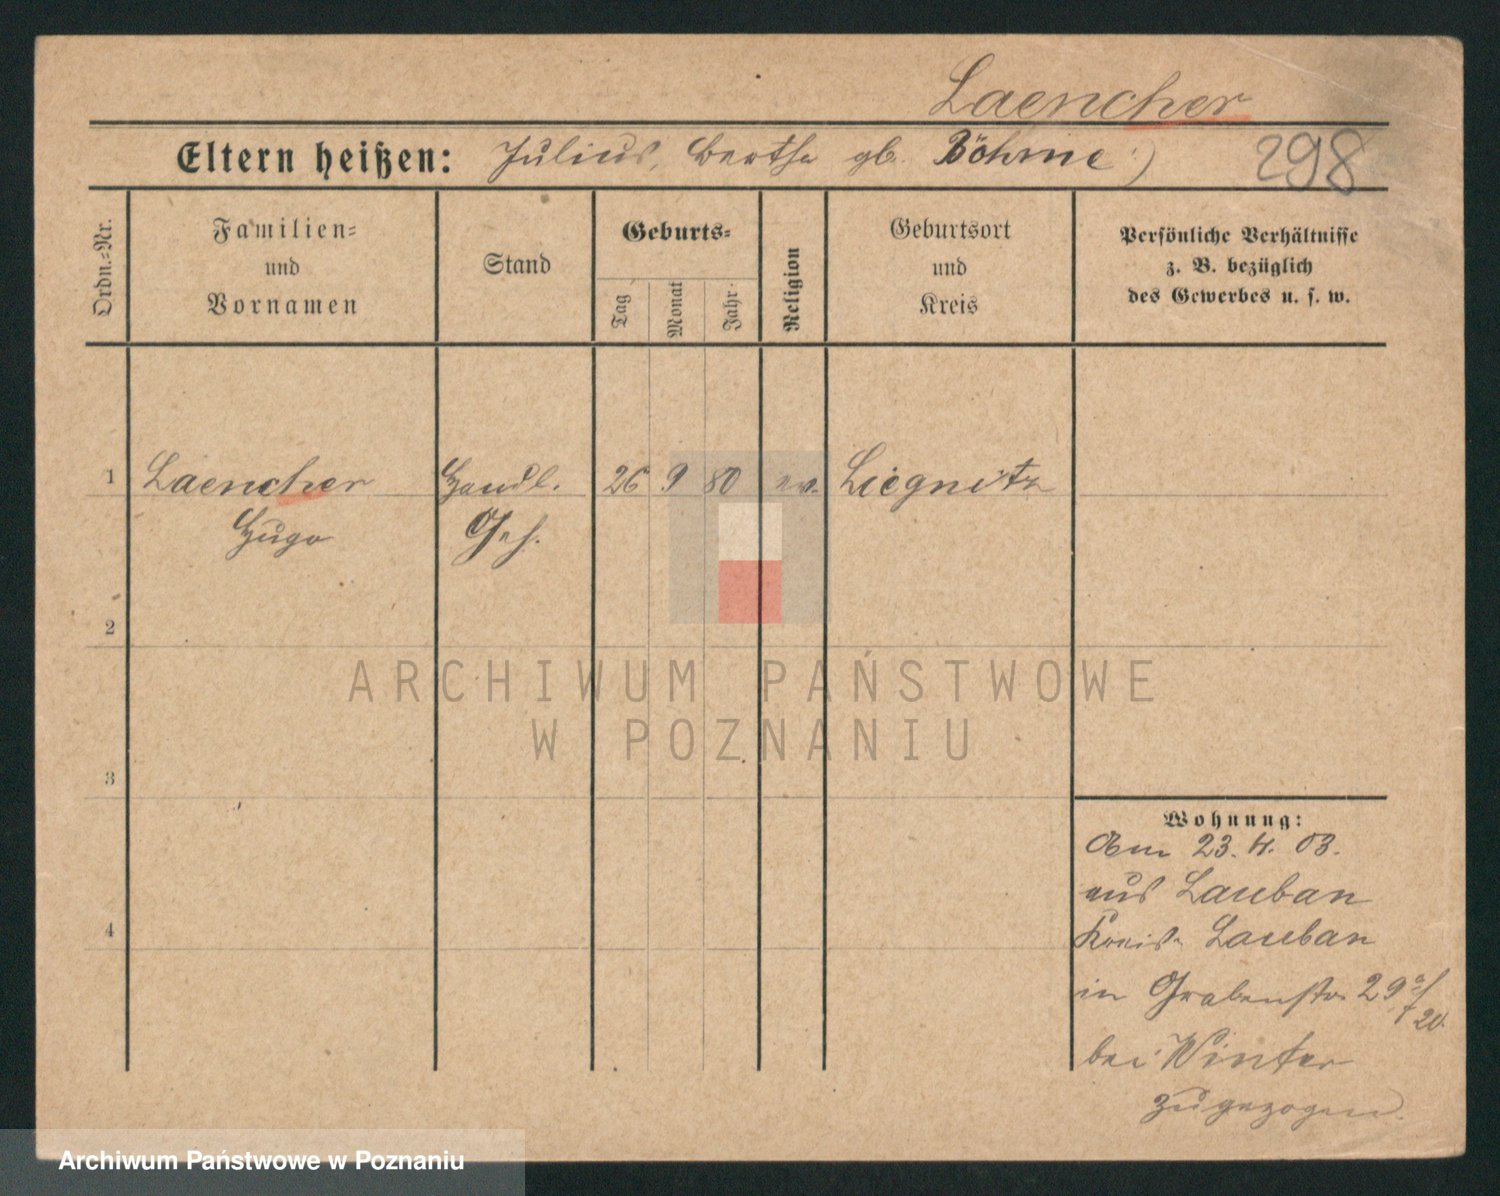 Laencher
Eltern heißen: Julius, Bertha gb. Böhme)
298
Ordn.-Nr.
Familien-
und
Vornamen
Stand
Geburts-
Tag
Monat
Jahr
Religion
Geburtsort
und
Kreis
Persönliche Verhältnisse
z. B. bezüglich
des Gewerbes u. s. w.
1 Laencher Handl. 26 9 80 ev. Liegnitz
Hugo Geh.
2
ARCHIWUM PAŃSTWOWE
W POZNANIU
3
Wohnung:
Am 23. 4. 03.
aus Lauban
4 Kreis Lauban
in Grabenstr 29
bei Winter
zugezogen.
Archiwum Państwowe w Poznaniu